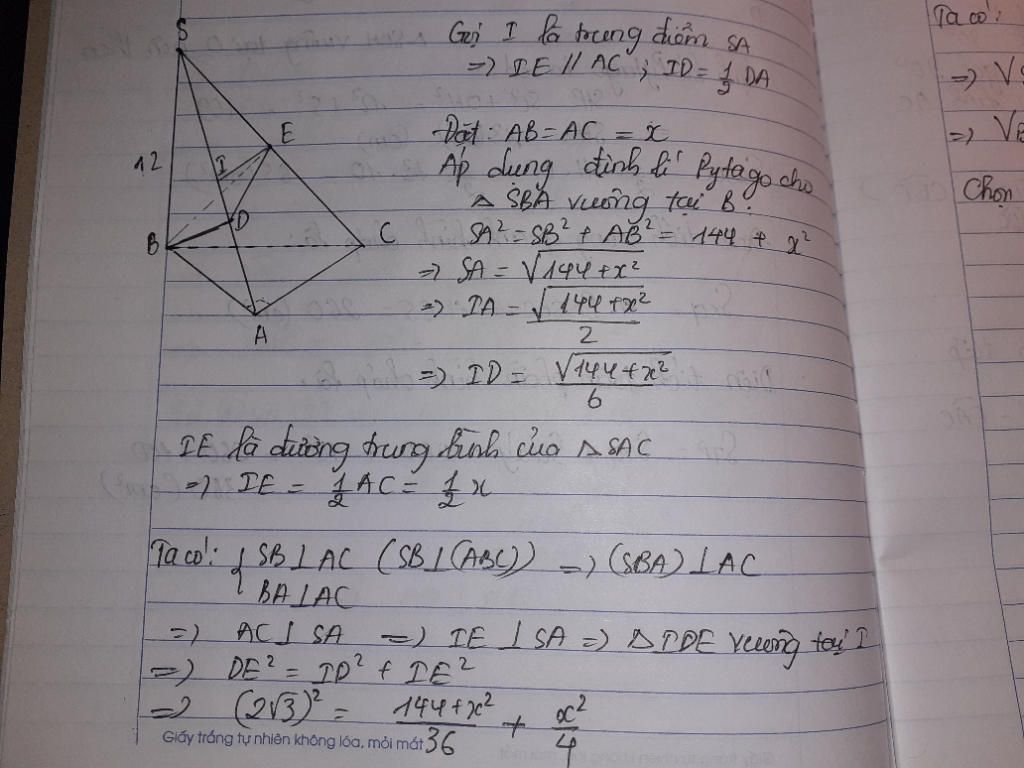 S
E
I
12
D
B
C
A
Gọi I là trung điểm SA
=> IE // AC ; ID = 1/3 DA
Đặt : AB = AC = x
Áp dụng định lí Pytago cho
△ SBA vuông tại B :
SA² = SB² + AB² = 144 + x²
=> SA = √(144+x²)
=> IA = √(144+x²) / 2
=> ID = √(144+x²) / 6
IE là đường trung bình của △ SAC
=> IE = 1/2 AC = 1/2 x
Ta có: { SB ⊥ AC (SB ⊥ (ABC)) => (SBA) ⊥ AC
BA ⊥ AC
=> AC ⊥ SA => IE ⊥ SA => △ IDE vuông tại I
=> DE² = ID² + IE²
=> (2√3)² = (144+x²)/36 + x²/4
Giấy trắng tự nhiên không lóa, mỏi mắt
Ta có:
=> √
=> √B
Chọn